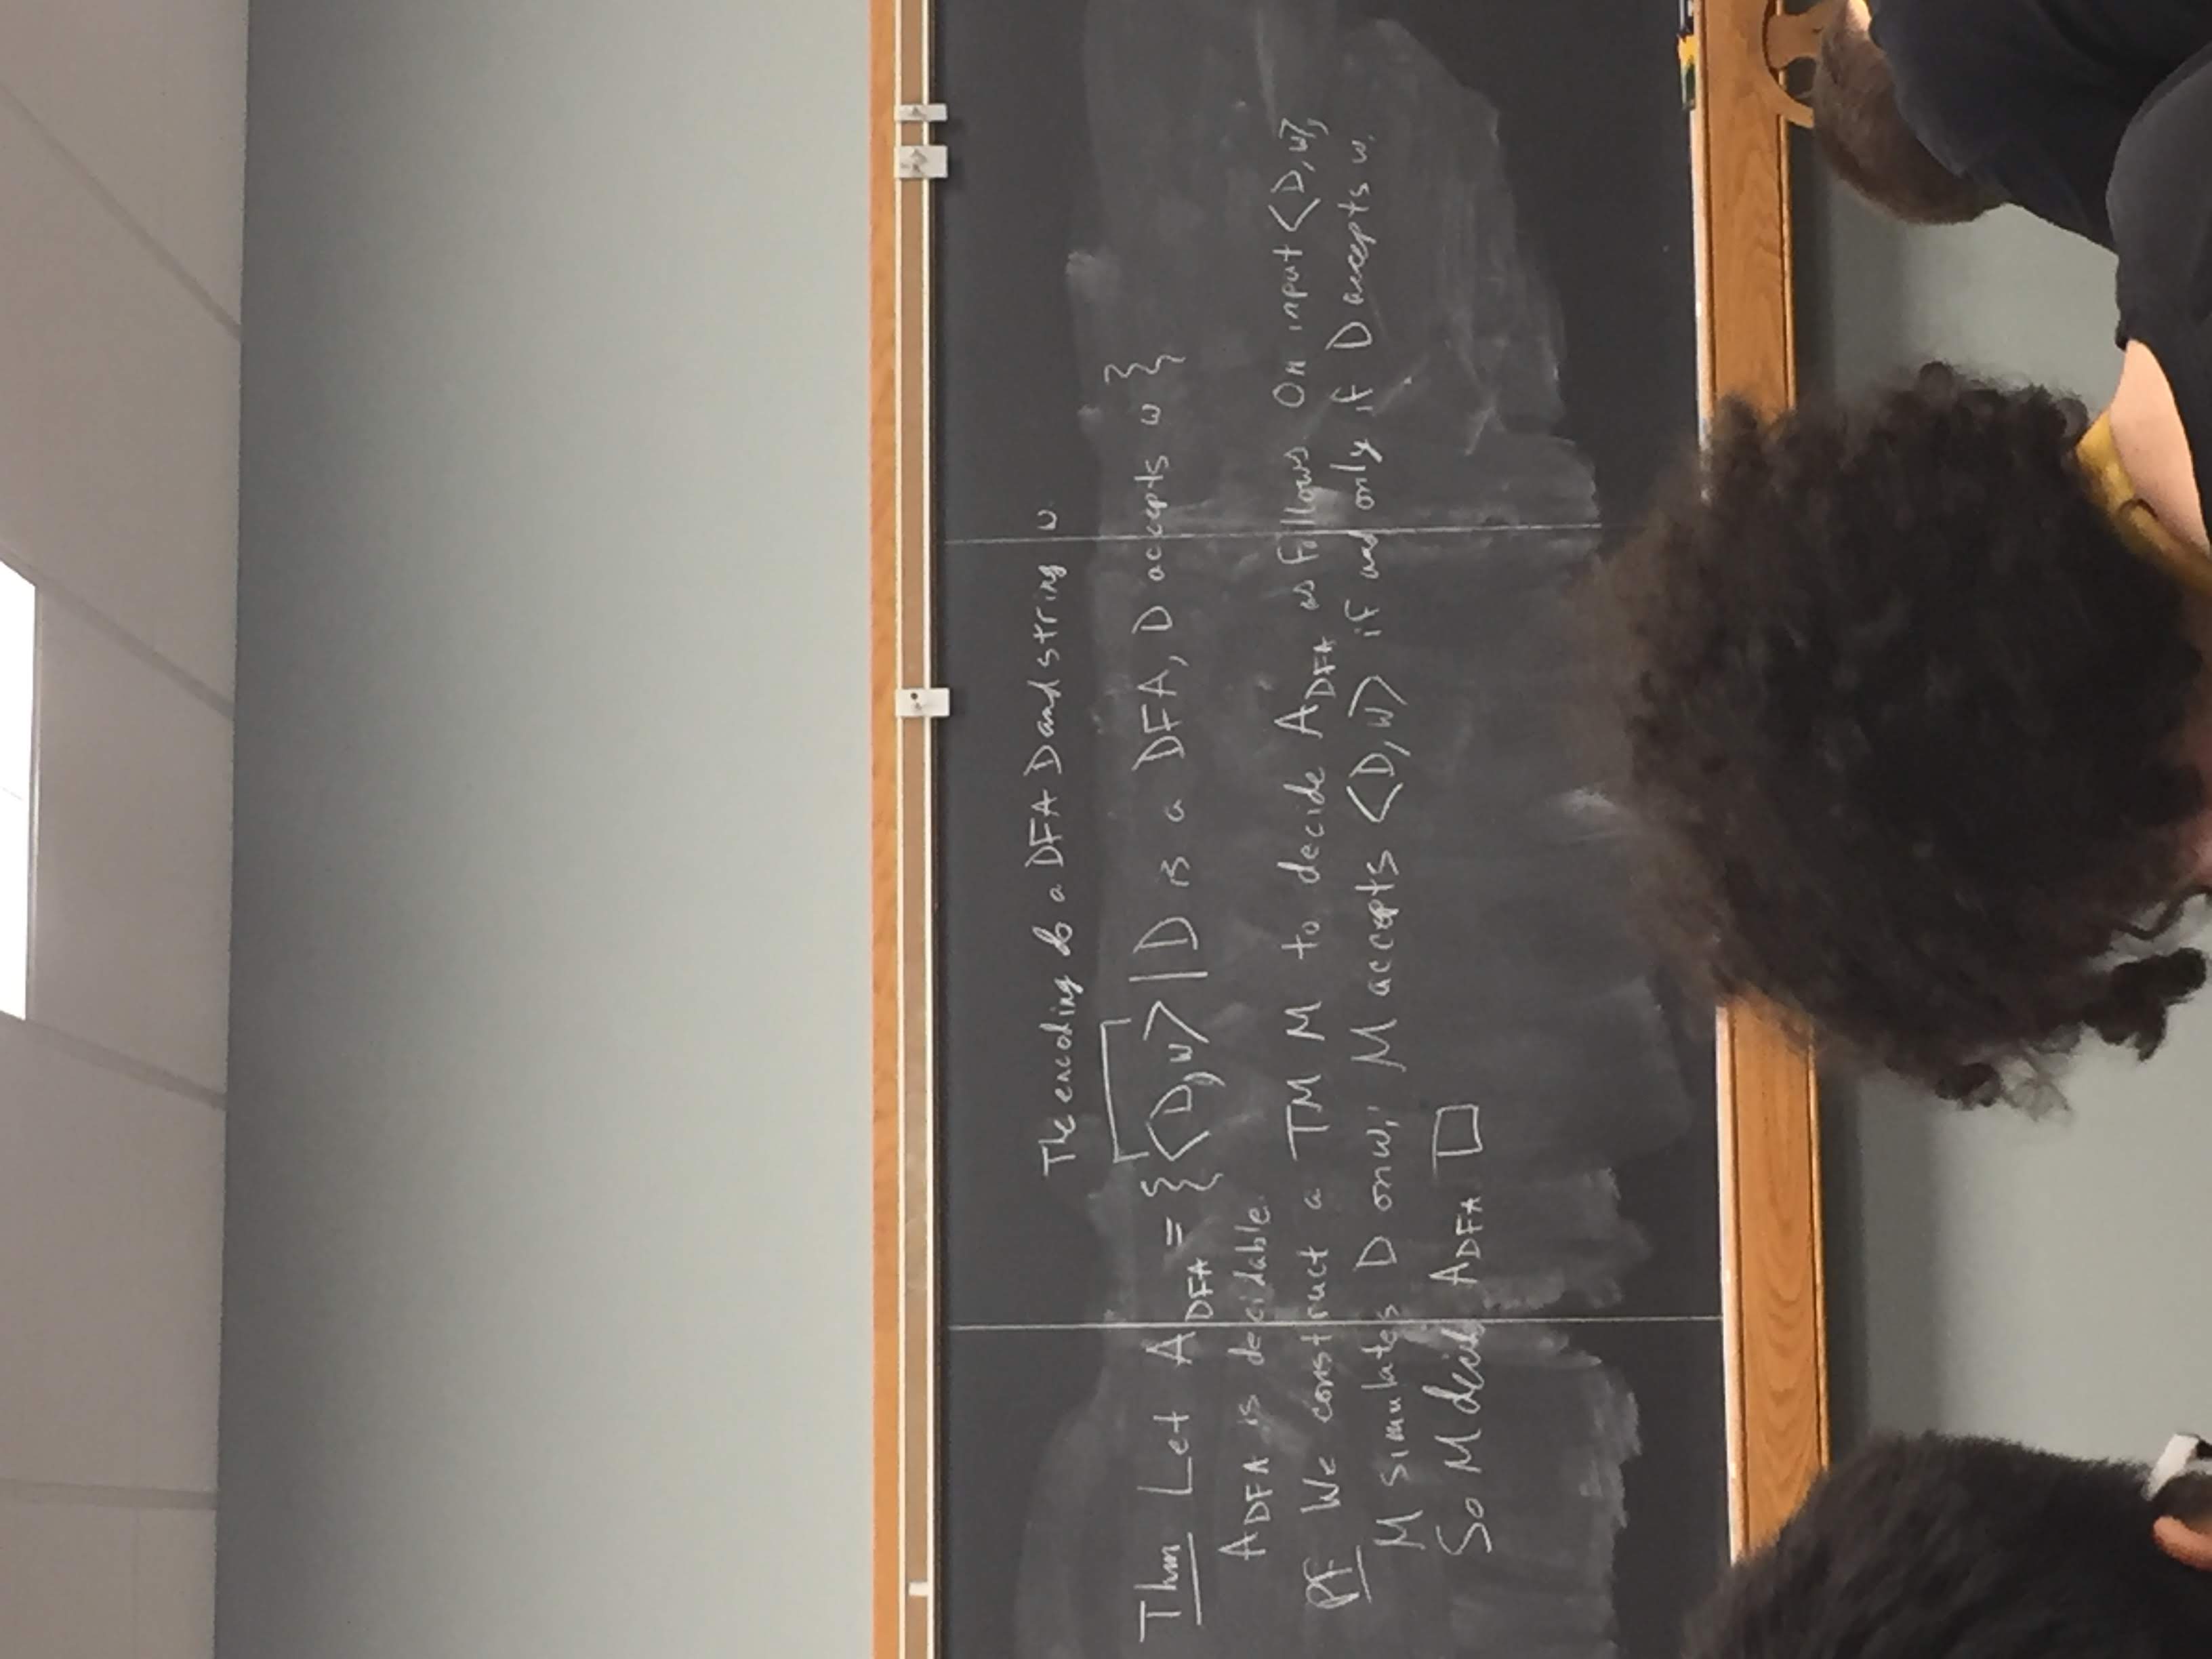 The encoding of a DFA D and string w.
Thm Let A_DFA = {<D,w> | D is a DFA, D accepts w}
A_DFA is decidable.
PF We construct a TM M to decide A_DFA as follows. On input <D,w>,
M simulates D on w; M accepts <D,w> if and only if D accepts w.
So M decid A_DFA □